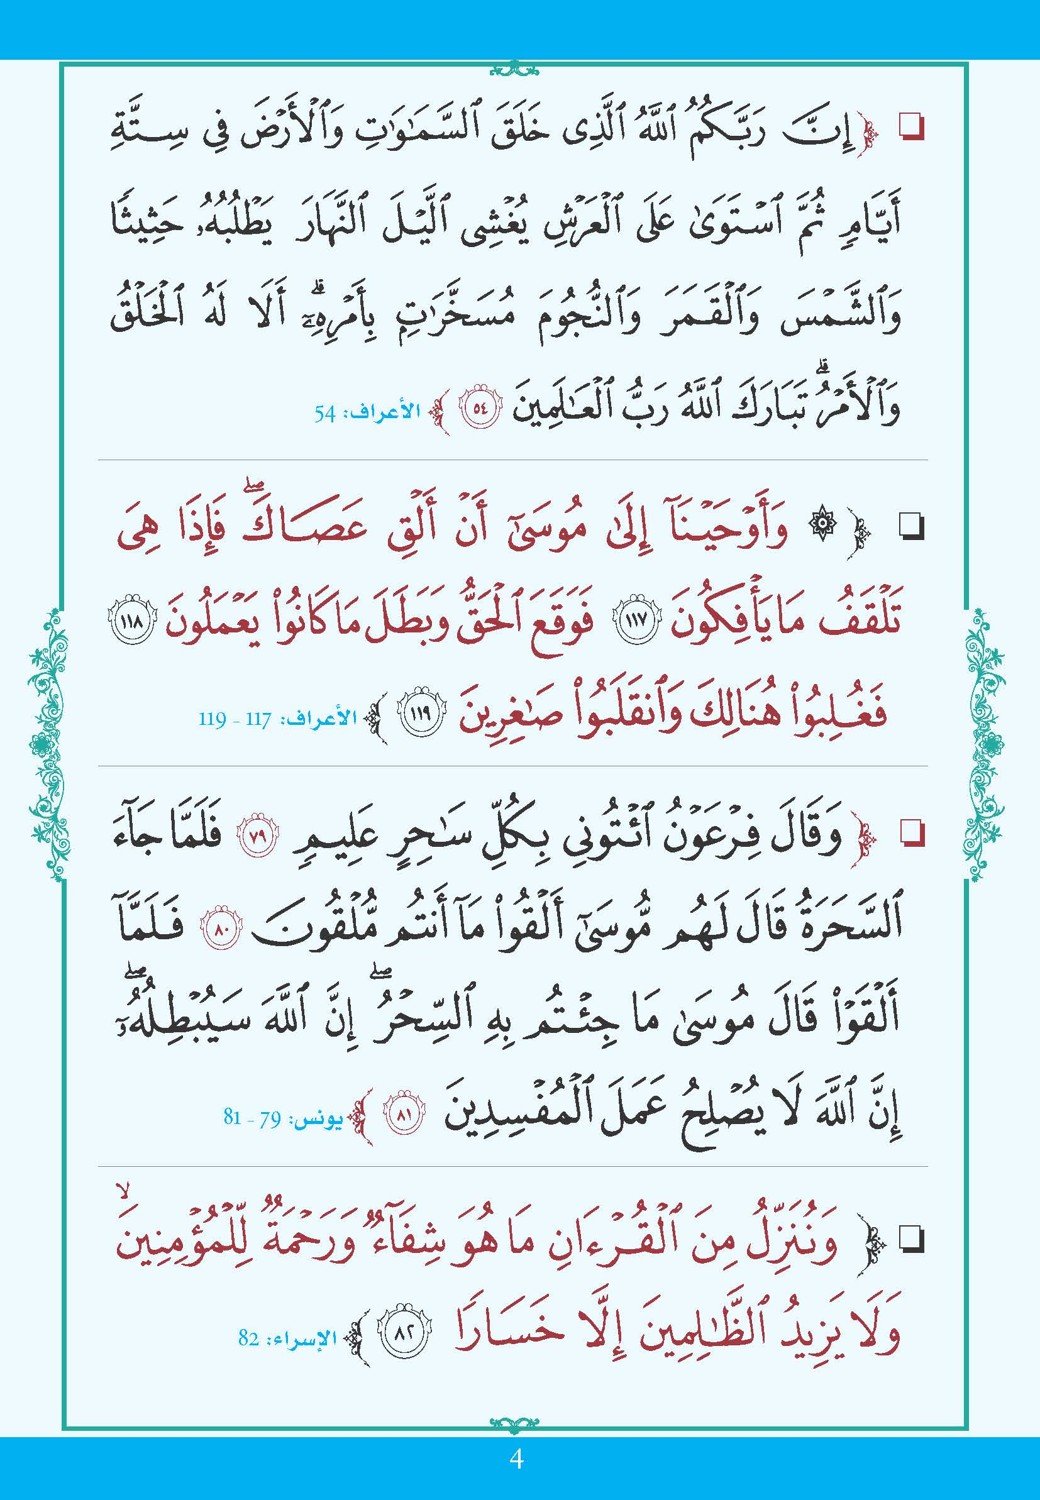 ❏ ﴿إِنَّ رَبَّكُمُ ٱللَّهُ ٱلَّذِى خَلَقَ ٱلسَّمَٰوَٰتِ وَٱلْأَرْضَ فِى سِتَّةِ
أَيَّامٍ ثُمَّ ٱسْتَوَىٰ عَلَى ٱلْعَرْشِ يُغْشِى ٱلَّيْلَ ٱلنَّهَارَ يَطْلُبُهُۥ حَثِيثًا
وَٱلشَّمْسَ وَٱلْقَمَرَ وَٱلنُّجُومَ مُسَخَّرَٰتٍۭ بِأَمْرِهِۦٓ ۗ أَلَا لَهُ ٱلْخَلْقُ
وَٱلْأَمْرُ ۗ تَبَارَكَ ٱللَّهُ رَبُّ ٱلْعَٰلَمِينَ ٥٤﴾ الأعراف: 54
❏ ﴿۞ وَأَوْحَيْنَآ إِلَىٰ مُوسَىٰٓ أَنْ أَلْقِ عَصَاكَ ۖ فَإِذَا هِىَ
تَلْقَفُ مَا يَأْفِكُونَ ١١٧ فَوَقَعَ ٱلْحَقُّ وَبَطَلَ مَا كَانُوا۟ يَعْمَلُونَ ١١٨
فَغُلِبُوا۟ هُنَالِكَ وَٱنقَلَبُوا۟ صَٰغِرِينَ ١١٩﴾ الأعراف: 117 - 119
❏ ﴿وَقَالَ فِرْعَوْنُ ٱئْتُونِى بِكُلِّ سَٰحِرٍ عَلِيمٍ ٧٩ فَلَمَّا جَآءَ
ٱلسَّحَرَةُ قَالَ لَهُم مُّوسَىٰٓ أَلْقُوا۟ مَآ أَنتُم مُّلْقُونَ ٨٠ فَلَمَّآ
أَلْقَوْا۟ قَالَ مُوسَىٰ مَا جِئْتُم بِهِ ٱلسِّحْرُ ۖ إِنَّ ٱللَّهَ سَيُبْطِلُهُۥٓ ۖ
إِنَّ ٱللَّهَ لَا يُصْلِحُ عَمَلَ ٱلْمُفْسِدِينَ ٨١﴾ يونس: 79 - 81
❏ ﴿وَنُنَزِّلُ مِنَ ٱلْقُرْءَانِ مَا هُوَ شِفَآءٌ وَرَحْمَةٌ لِّلْمُؤْمِنِينَ ۙ
وَلَا يَزِيدُ ٱلظَّٰلِمِينَ إِلَّا خَسَارًا ٨٢﴾ الإسراء: 82
4